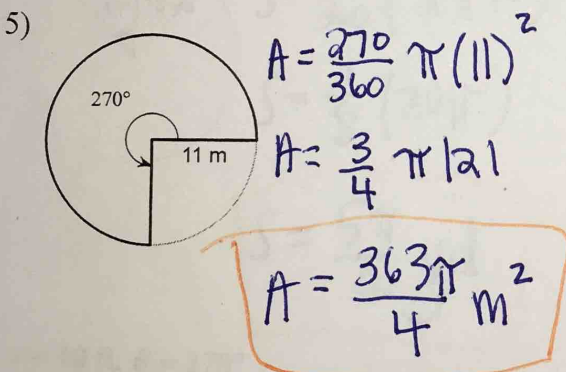 5)
270°
11 m
A = 270/360 π(11)²
A = 3/4 π121
A = 363π/4 m²